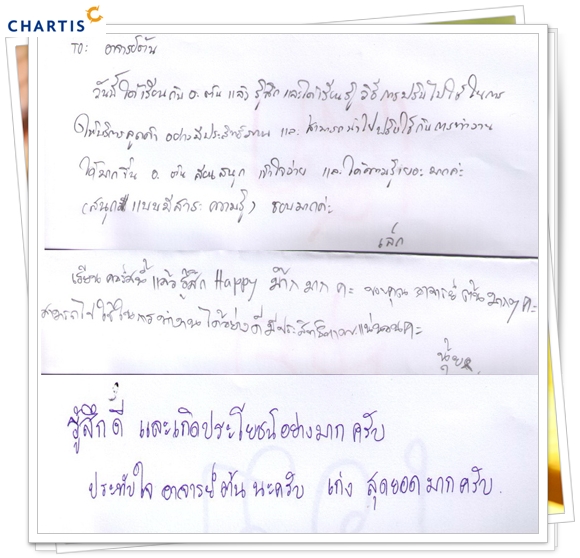 CHARTIS
TO: อาจารย์ต้น
วันนี้ได้เรียนกับ อ. ต้น แล้ว รู้สึก และได้เรียนรู้ วิธีการปรับไปใช้ ในการ
ให้บริการลูกค้า อย่างมีประสิทธิภาพ และ สามารถนำไปปรับใช้กับการทำงาน
ได้มากขึ้น อ. ต้น สอนสนุก เข้าใจง่าย และได้ความรู้เยอะ มากค่ะ
(สนุก แบบมีสาระ ความรู้) ชอบมากค่ะ
เล็ก
เรียน คอร์สนี้ แล้ว รู้สึก Happy ม๊าก มาก ค่ะ ขอบคุณ อาจารย์ ต้น มากๆ ค่ะ
สามารถไปใช้ในการทำงานได้อย่างดี มีประสิทธิภาพแน่นอนค่ะ
รู้สึกดี และเกิดประโยชน์อย่างมาก ครับ
ประทับใจ อาจารย์ ต้น นะครับ เก่ง สุดยอด มากครับ.